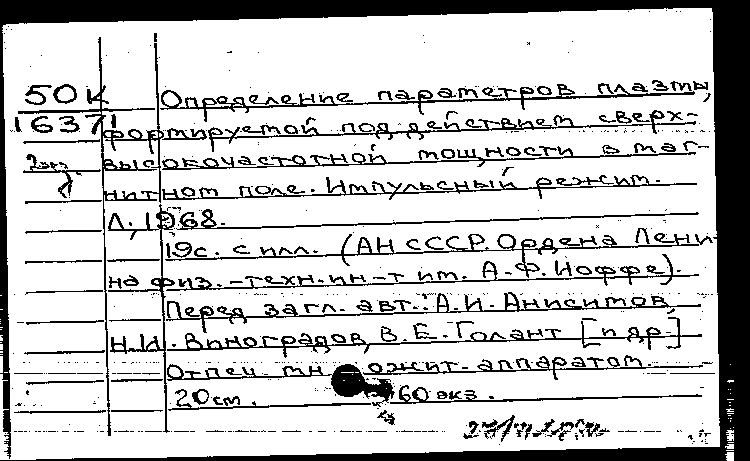 50к
16371
2экз.
Определение параметров плазмы,
формируемой под действием сверх-
высокочастотной мощности в маг-
нитном поле. Импульсный режим.
Л., 1968.
19с. с илл. (АН СССР. Ордена Лени-
на физ.-техн. ин-т им. А.Ф. Иоффе).
Перед загл. авт.: А.И. Анисимов,
Н.И. Виноградов, В.Е. Голант [и др.]
Отпеч. мн ожит. аппаратом.
20см. 60 экз.